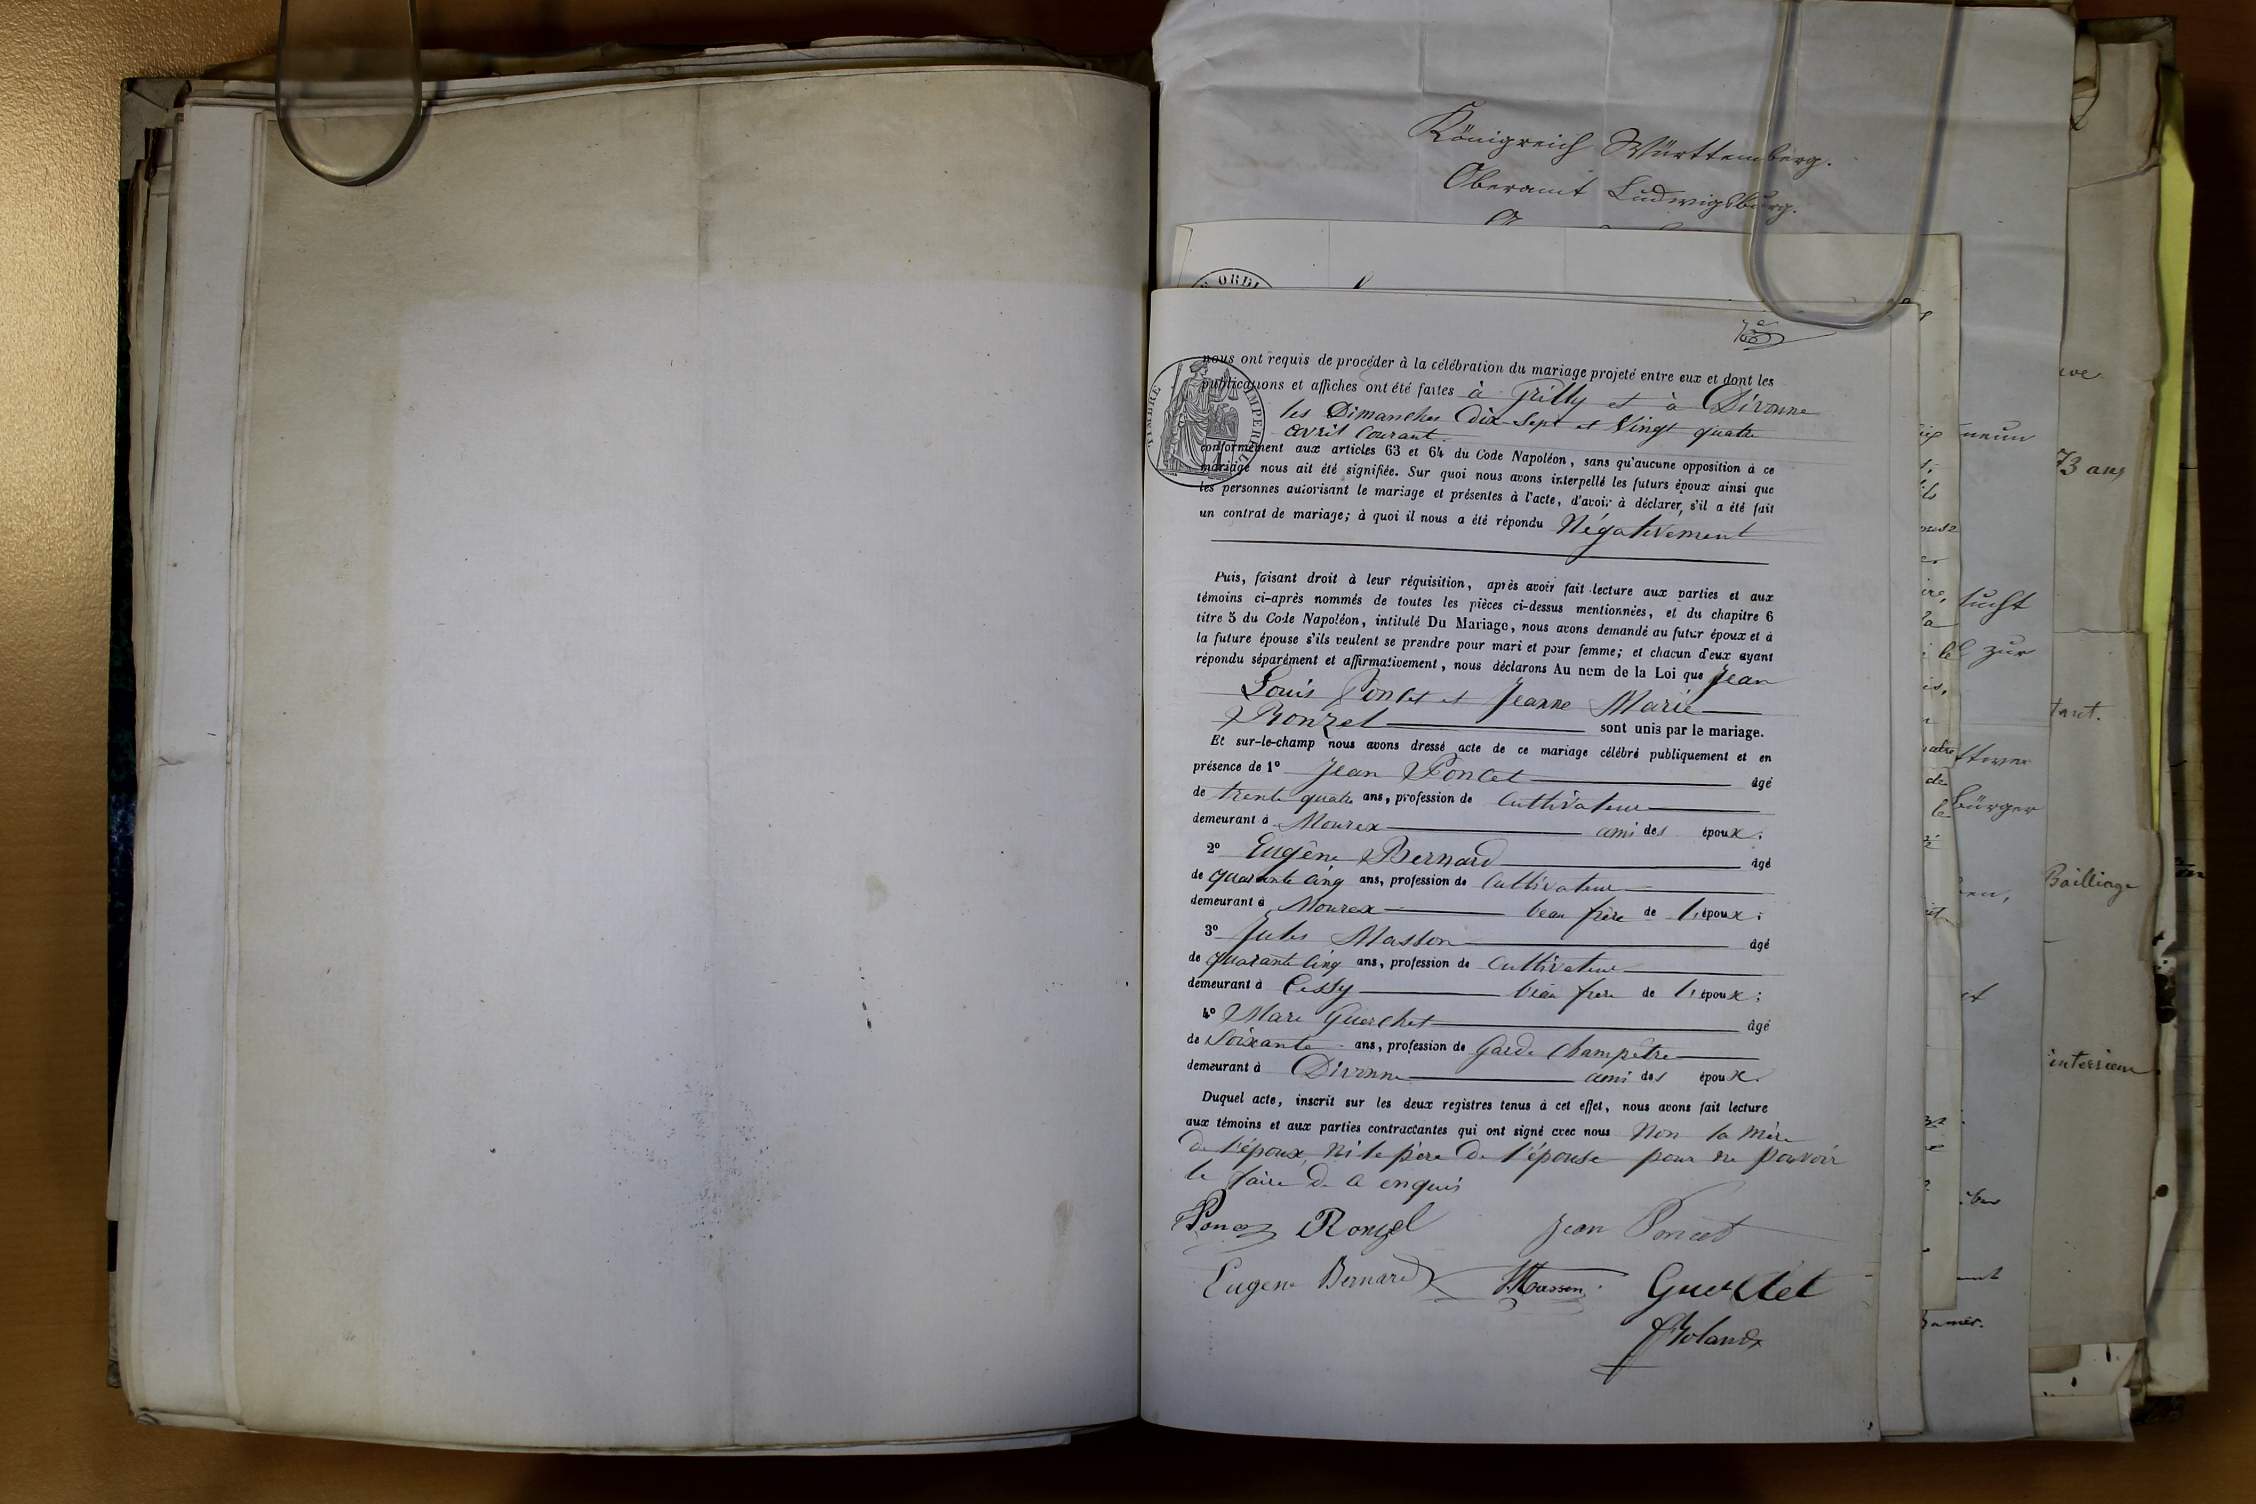 Königreich Württemberg.
Oberamt Ludwigsburg.
ORDI
TIMBRE IMPERIAL
nous ont requis de procéder à la célébration du mariage projeté entre eux et dont les
publications et affiches ont été faites à Grilly et à Divonne
les Dimanches dix-sept et Vingt quatre
avril Courant.
conformément aux articles 63 et 64 du Code Napoléon, sans qu'aucune opposition à ce
mariage nous ait été signifiée. Sur quoi nous avons interpellé les futurs époux ainsi que
les personnes autorisant le mariage et présentes à l'acte, d'avoir à déclarer, s'il a été fait
un contrat de mariage; à quoi il nous a été répondu Négativement
Puis, faisant droit à leur réquisition, après avoir fait lecture aux parties et aux
témoins ci-après nommés de toutes les pièces ci-dessus mentionnées, et du chapitre 6
titre 5 du Code Napoléon, intitulé Du Mariage, nous avons demandé au futur époux et à
la future épouse s'ils veulent se prendre pour mari et pour femme; et chacun d'eux ayant
répondu séparément et affirmativement, nous déclarons Au nom de la Loi que Jean
Louis Poncet et Jeanne Marie
Ronzel sont unis par le mariage.
Et sur-le-champ nous avons dressé acte de ce mariage célébré publiquement et en
présence de 1° Jean Poncet âgé
de trente quatre ans, profession de Cultivateur
demeurant à Mourex ami des époux;
2° Eugène Bernard âgé
de quarante cinq ans, profession de Cultivateur
demeurant à Mourex beau frère de l'époux;
3° Jules Masson âgé
de quarante cinq ans, profession de Cultivateur
demeurant à Cessy beau frere de l'époux;
4° Marc Guerchet âgé
de Soixante ans, profession de Garde Champêtre
demeurant à Divonne ami des époux.
Duquel acte, inscrit sur les deux registres tenus à cet effet, nous avons fait lecture
aux témoins et aux parties contractantes qui ont signé avec nous Non la mère
de l'époux, Ni le père de l'épouse pour ne pouvoir
le faire de ce enquis
Poncet Ronzel Jean Poncet
Eugene Bernard Masson Guerchet
Rolandx
73 ans
sucht
zur
tant.
Bürger
Bailliage